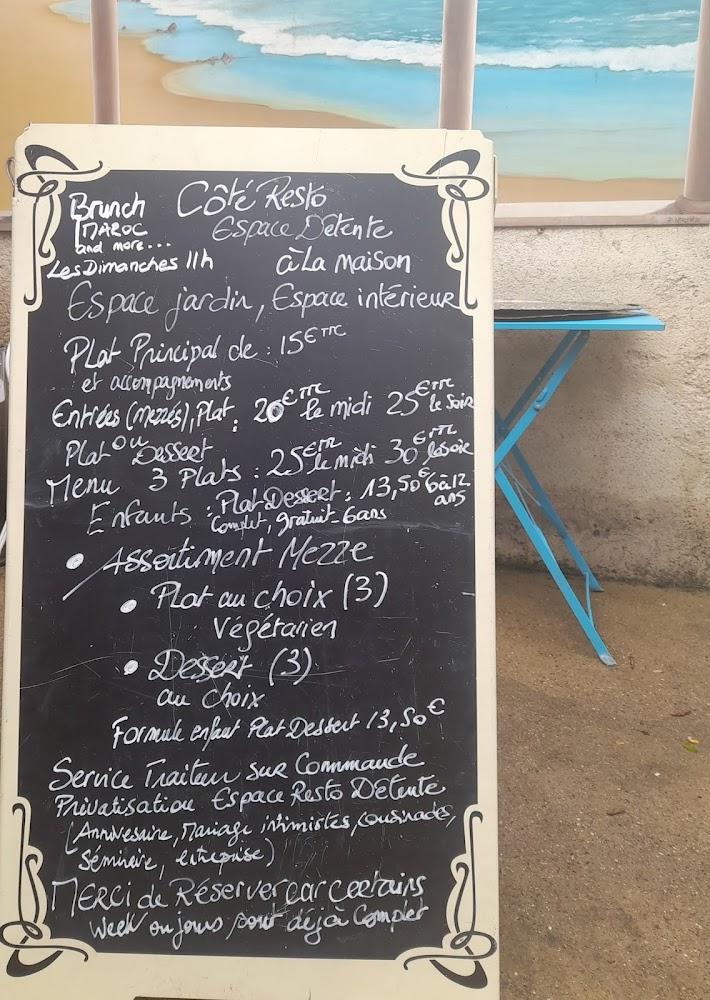 Brunch
MAROC
and more...
Les Dimanches 11h
Côté Resto
Espace Détente
à La maison
Espace jardin, Espace intérieur
Plat Principal de : 15€ TTC
et accompagnements
Entrées (mezzés), Plat : 20€ TTC le midi 25€ TTC le soir
Plat ou Dessert
Menu 3 Plats : 25€ TTC le midi 30€ TTC le soir
Enfants : Plat Dessert : 13,50€ 6 à 12 ans
Complet, gratuit - 6ans
• Assortiment Mezze
• Plat au choix (3)
Végétarien
• Dessert (3)
au choix
Formule enfant Plat Dessert 13,50€
Service Traiteur sur Commande
Privatisation Espace Resto Détente
(Anniversaire, Mariage intimistes, cousinades,
Séminaire, entreprise)
MERCI de Réserver car certains
Week ou jours sont déjà Complet